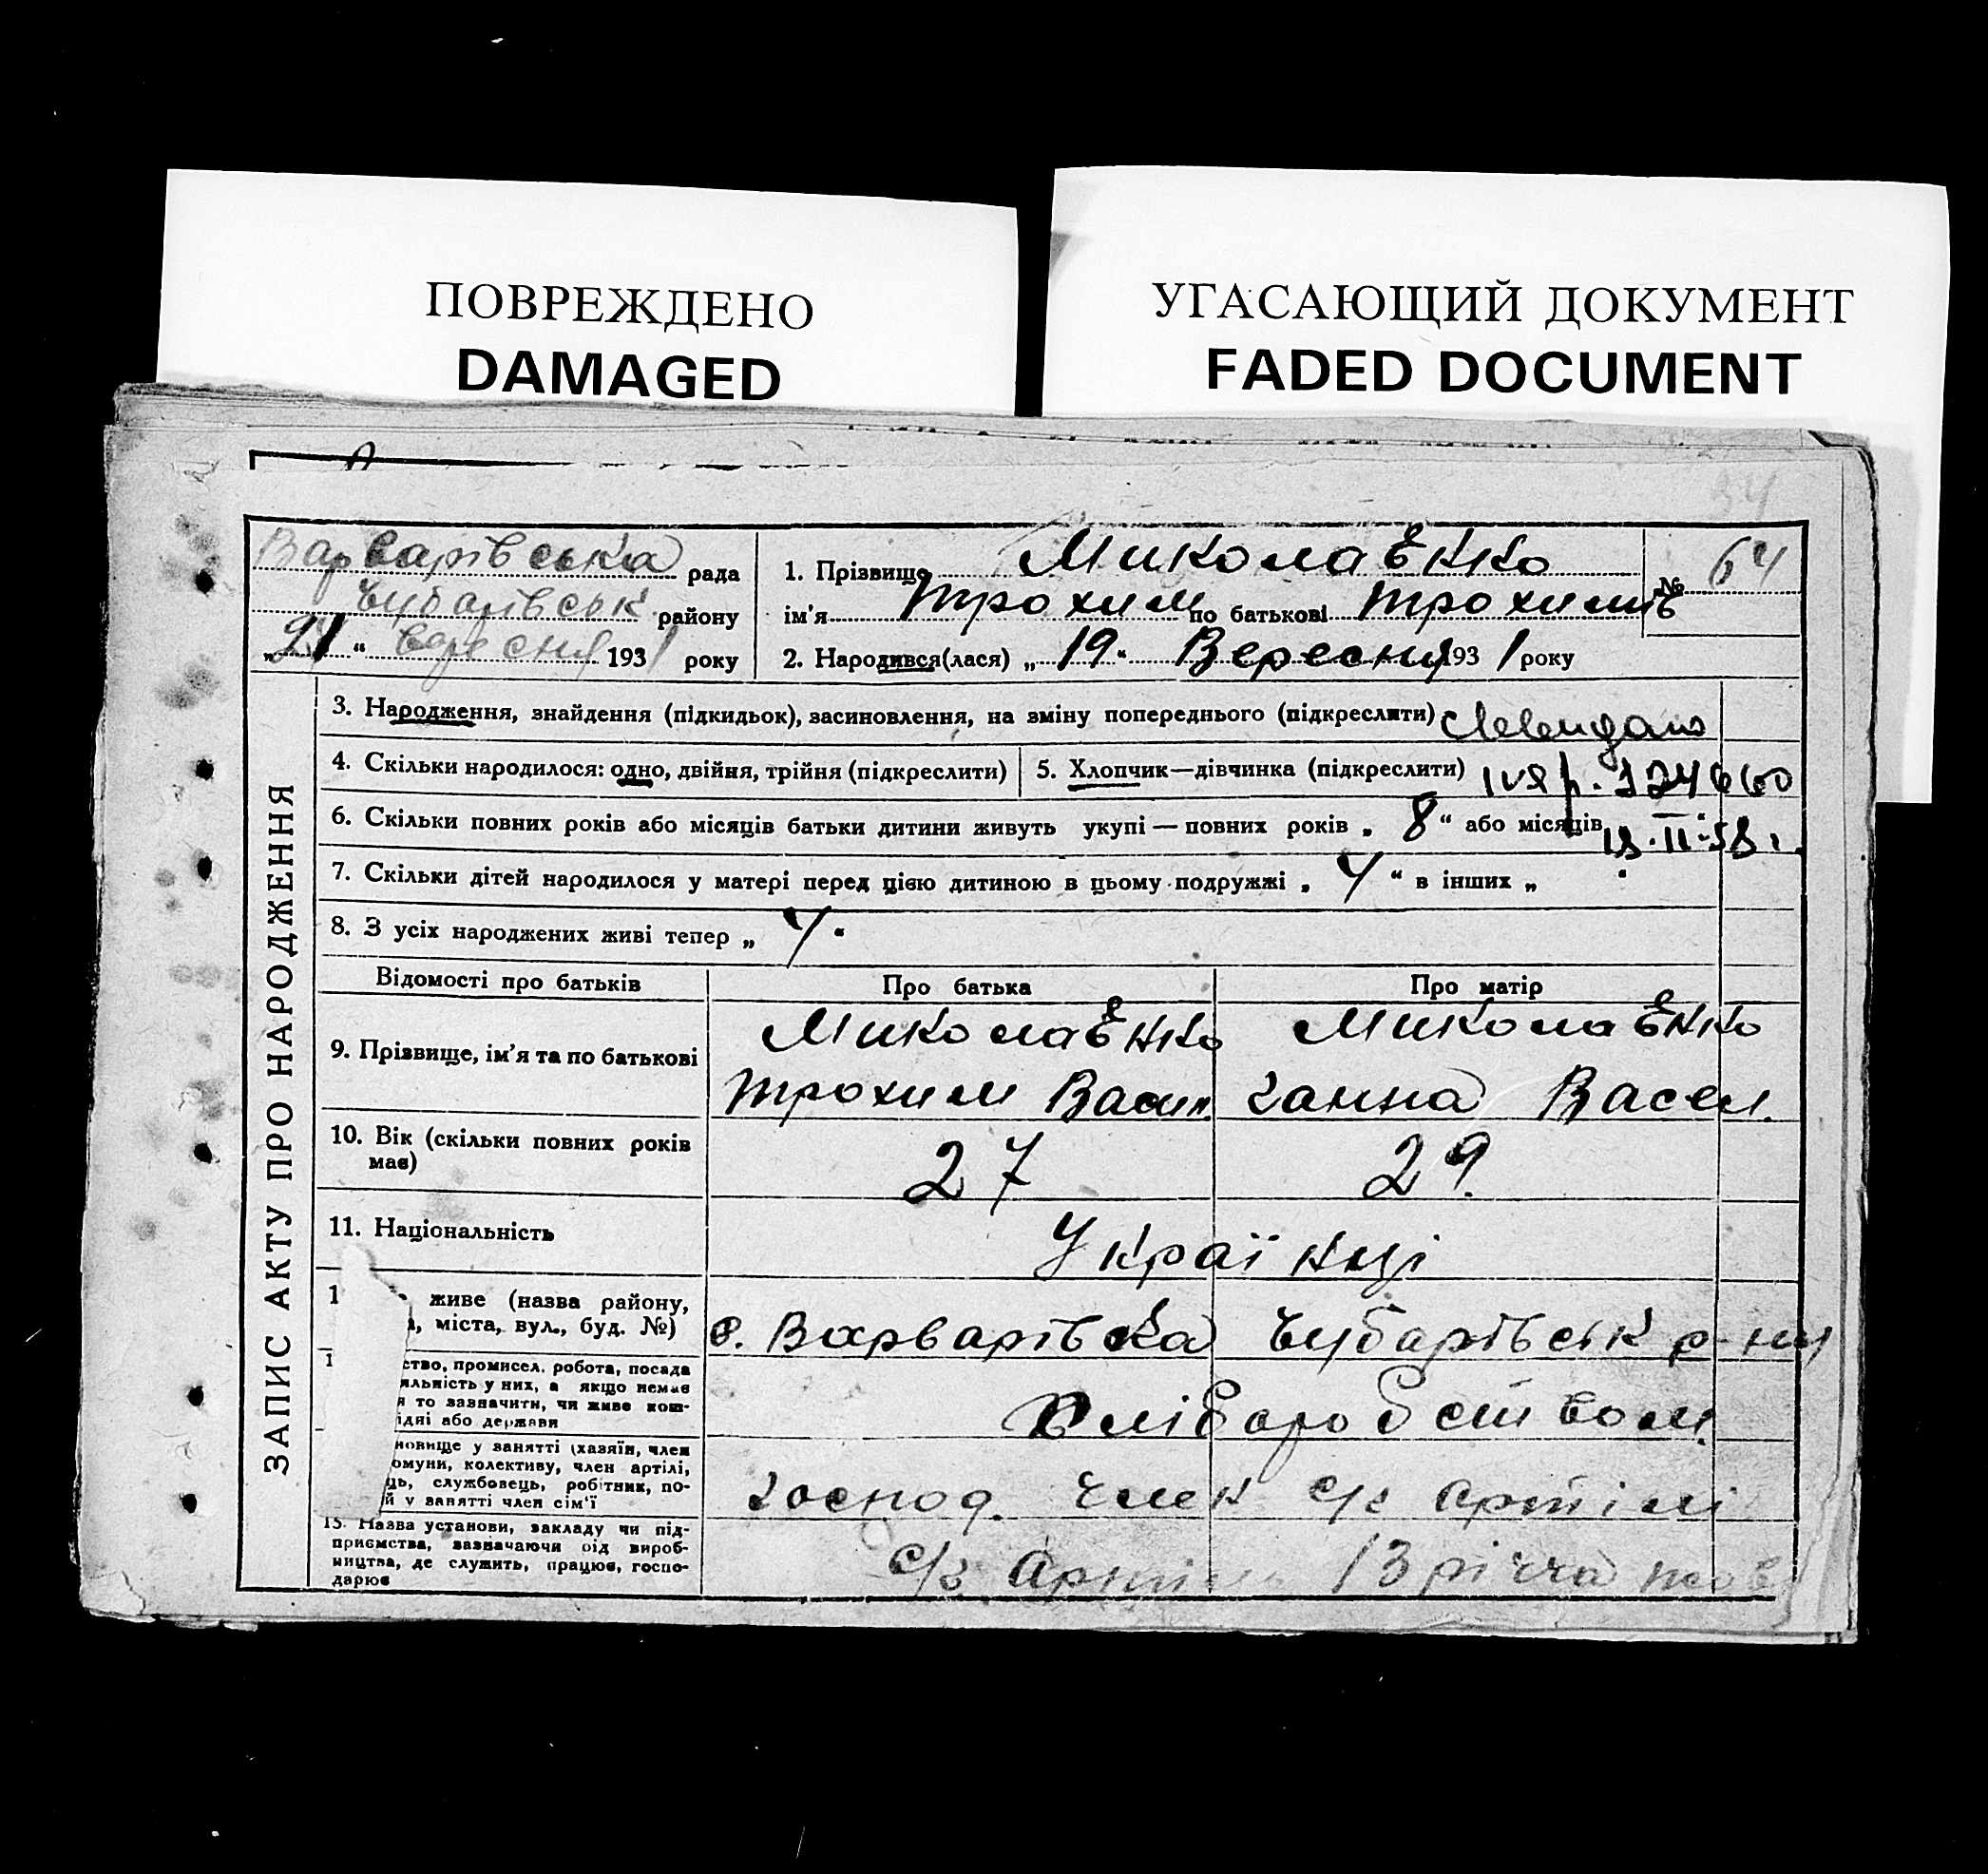 ПОВРЕЖДЕНО
DAMAGED
УГАСАЮЩИЙ ДОКУМЕНТ
FADED DOCUMENT
34
Варварівська рада
Чубарівськ району
„21“ вересня 1931 року
1. Прізвище Миколаєнко
№ 64
ім'я Трохим по батькові Трохимів
2. Народився(лася) „19“ Вересня 1931 року
ЗАПИС АКТУ ПРО НАРОДЖЕННЯ
3. Народження, знайдення (підкидьок), засиновлення, на зміну попереднього (підкреслити)
4. Скільки народилося: одно, двійня, трійня (підкреслити)
5. Хлопчик—дівчинка (підкреслити)
6. Скільки повних років або місяців батьки дитини живуть укупі — повних років „8“ або місяців
18.II.58 г.
7. Скільки дітей народилося у матері перед цією дитиною в цьому подружжі „4“ в інших „
8. З усіх народжених живі тепер „4“
Відомості про батьків
Про батька
Про матір
9. Прізвище, ім'я та по батькові
Миколаєнко
Трохим Васил.
Миколаєнко
Ганна Васел.
10. Вік (скільки повних років має)
27
29
11. Національність
Українці
1 живе (назва району,
, міста, вул., буд. №)
с. Варварівка Чубарівськ р-ну
1 ство, промисел. робота, посада
яльність у них, а якщо немає
я то зазначити, чи живе кош-
ідні або держави
Хліборобством
новище у занятті (хазяїн, член
омуни, колективу, член артілі,
ць, службовець, робітник, по-
й у занятті член сім'ї
господ. член с/г артілі
15. Назва установи, закладу чи під-
приємства, зазначаючи рід вироб-
ництва, де служить, працює, госпо-
дарює
с/г Артіль 13 річча